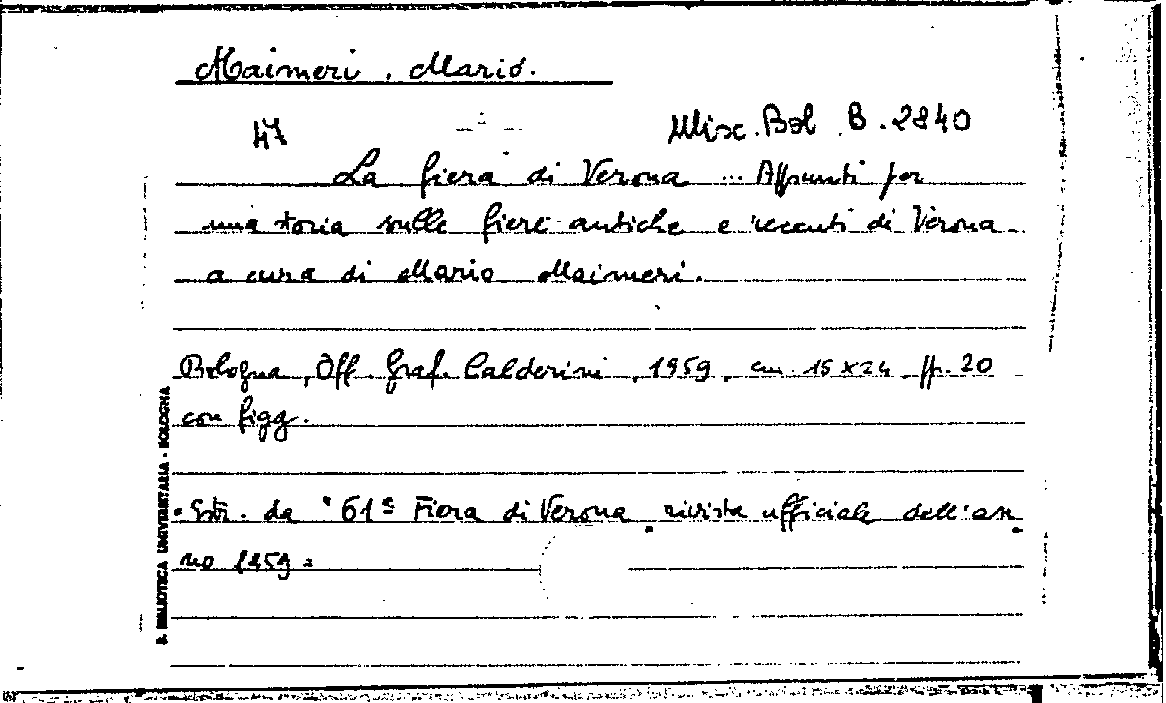 Maimeri, Mario.
47
Misc. Bol. B. 2840
La fiera di Verona ... Appunti per
una storia sulle fiere antiche e recenti di Verona
a cura di Mario Maimeri.
Bologna, Off. Graf. Calderini, 1959, cm. 15x24 pp. 20
con figg.
Estr. da "61ª Fiera di Verona, rivista ufficiale dell'an-
no 1959=
B. BIBLIOTECA UNIVERSITARIA - BOLOGNA